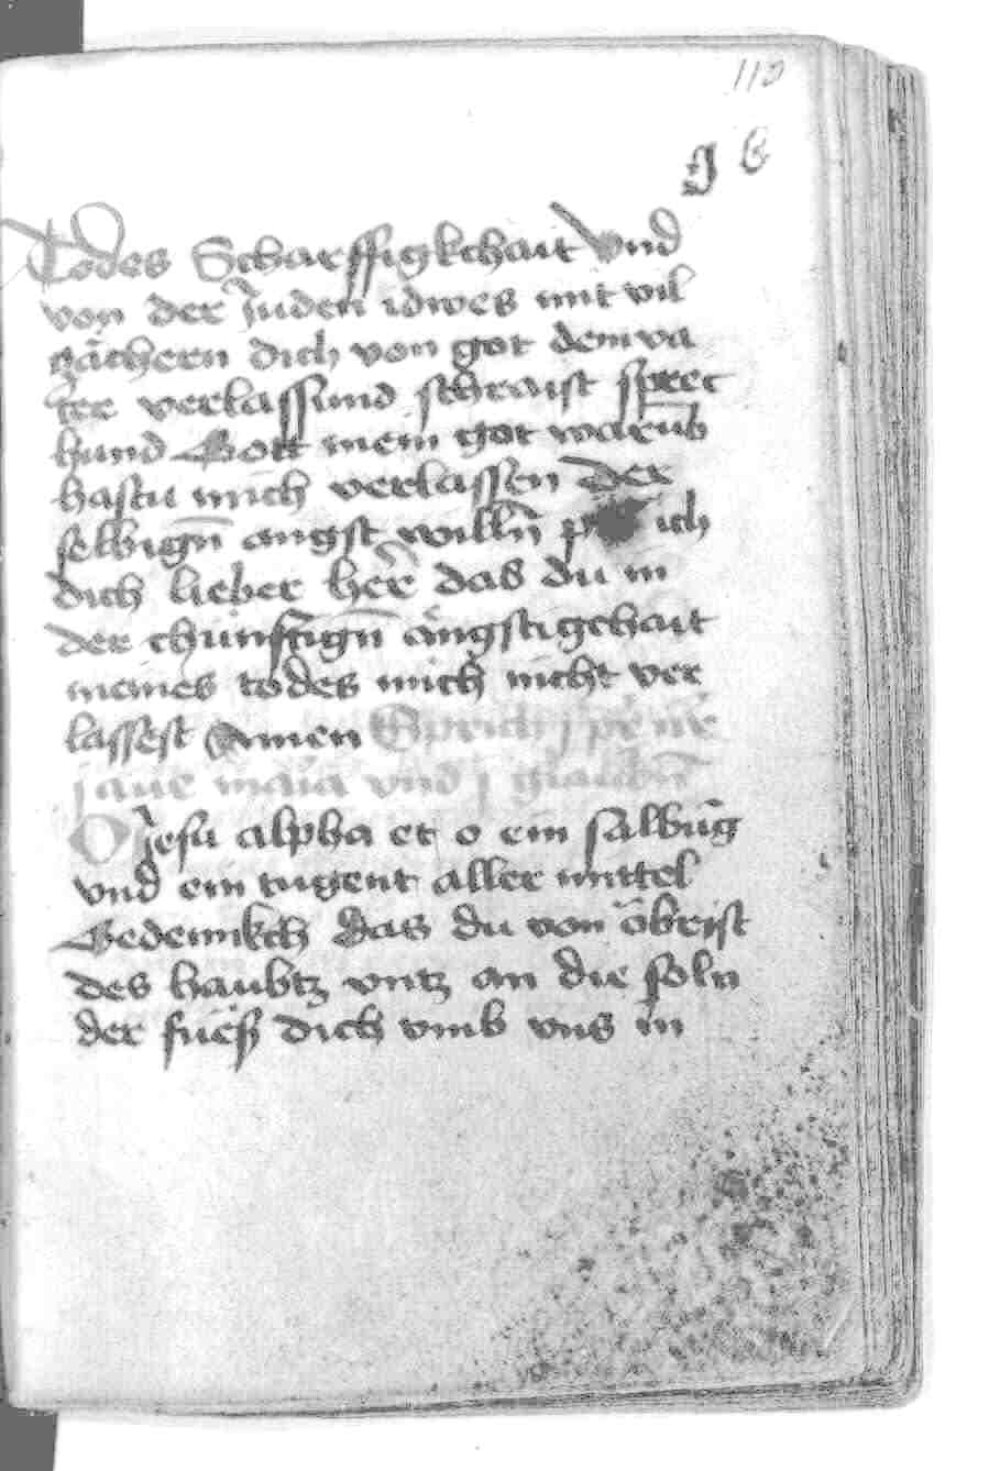 110
Todes Scharffigkchait Vnd
von der Juden idwes mit vil
zächern dich von got dem va
ter verlassund schraist sprec
hund Gott mein got warūb
hastu mich verlassen der
selbign̄ angst willn̄ ich
dich lieber her̄ das du in
der chünftign̄ ängstigchait
meines todes mich nicht ver
lassest Amen Sprich j pr̄ nr̄
j aue maria vnd j glaubn̄
O Jesu alpha et o ein salbūg
vnd ein tugent aller mittel
Gedennkch das du von öbrist
des haubtz vntz an die soln
der füeß dich vmb vns in